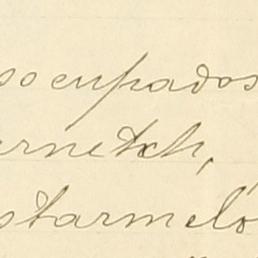 socupados
ernetch,
starmelo